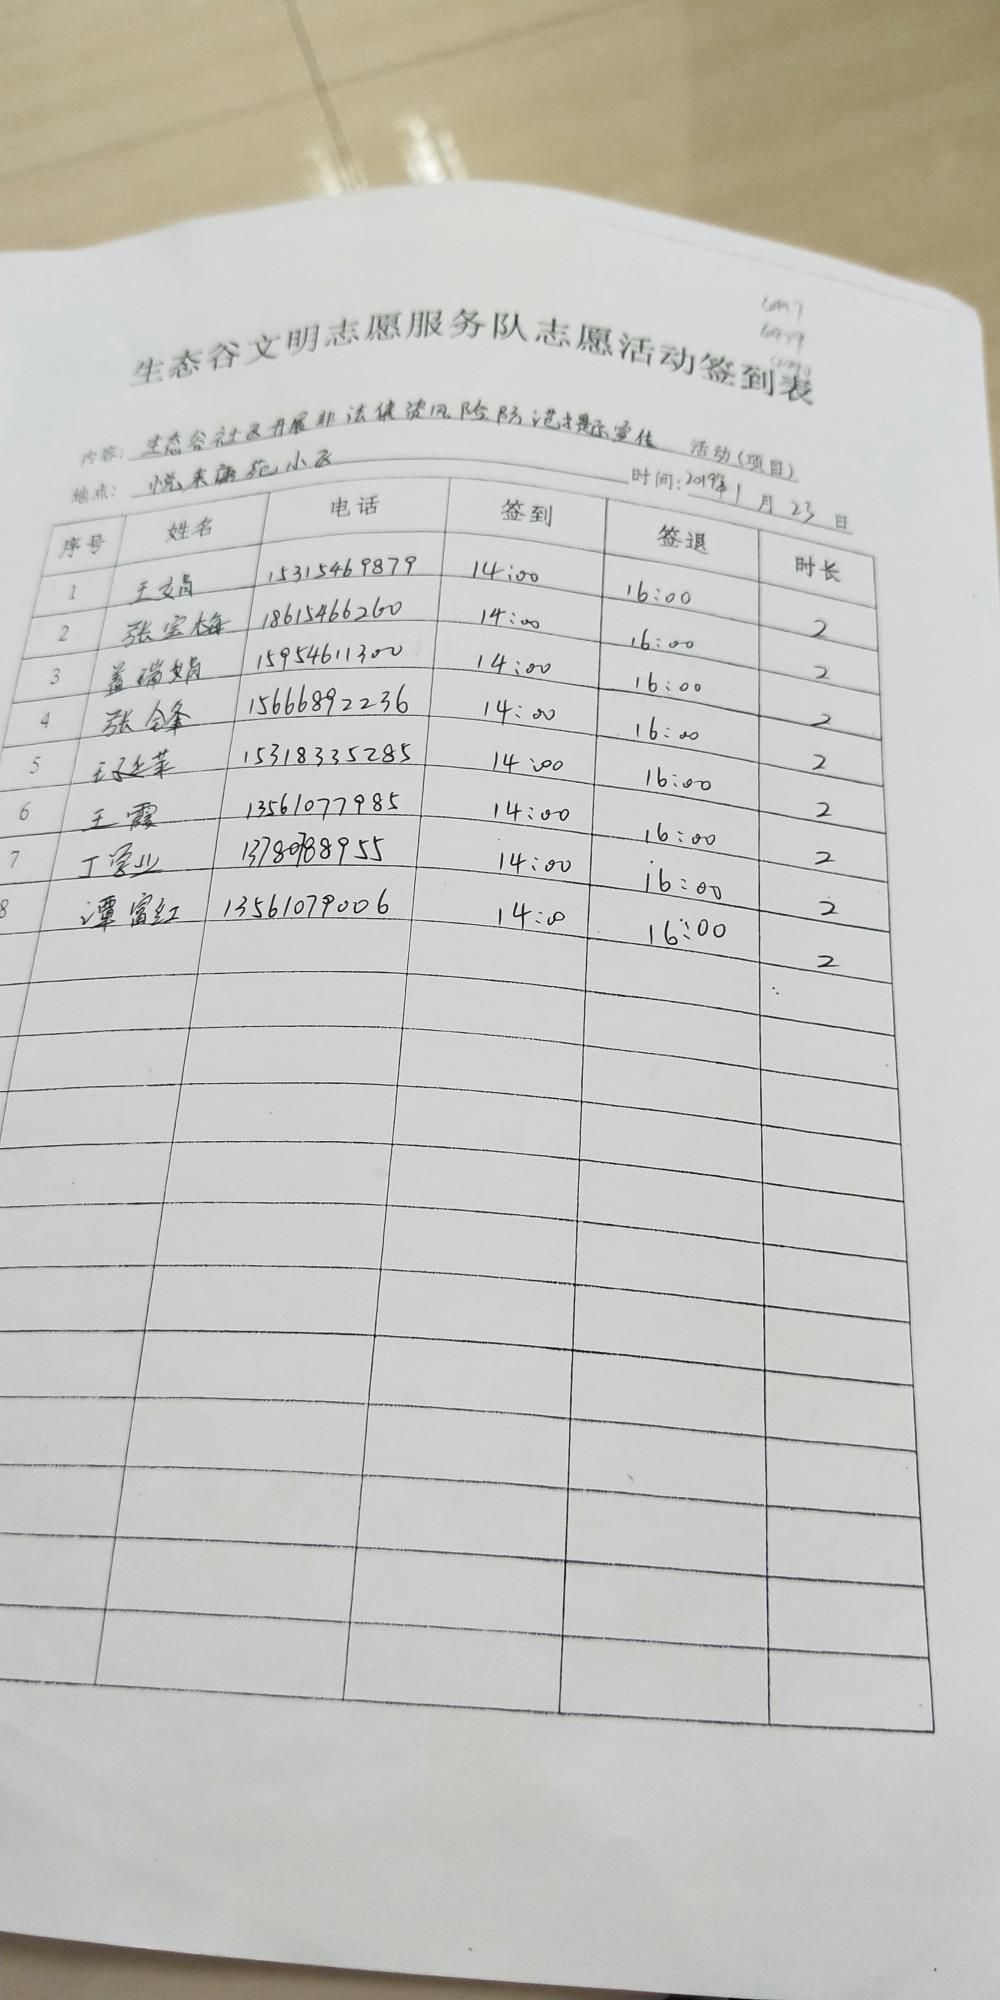 生态谷文明志愿服务队志愿活动签到表
内容: 生态谷社区开展非法集资风险防范提示宣传 活动(项目)
地点: 悦来康苑小区 时间: 2019年1月23日
序号 姓名 电话 签到 签退 时长
1 王娟 15315469879 14:00 16:00 2
2 张宝梅 18615466260 14:00 16:00 2
3 盖瑞娟 15954611300 14:00 16:00 2
4 张全锋 15666892236 14:00 16:00 2
5 15318335285 14:00 16:00 2
6 王霞 13561077985 14:00 16:00 2
7 丁学业 13780788955 14:00 16:00 2
8 谭富红 13561079006 14:00 16:00 2